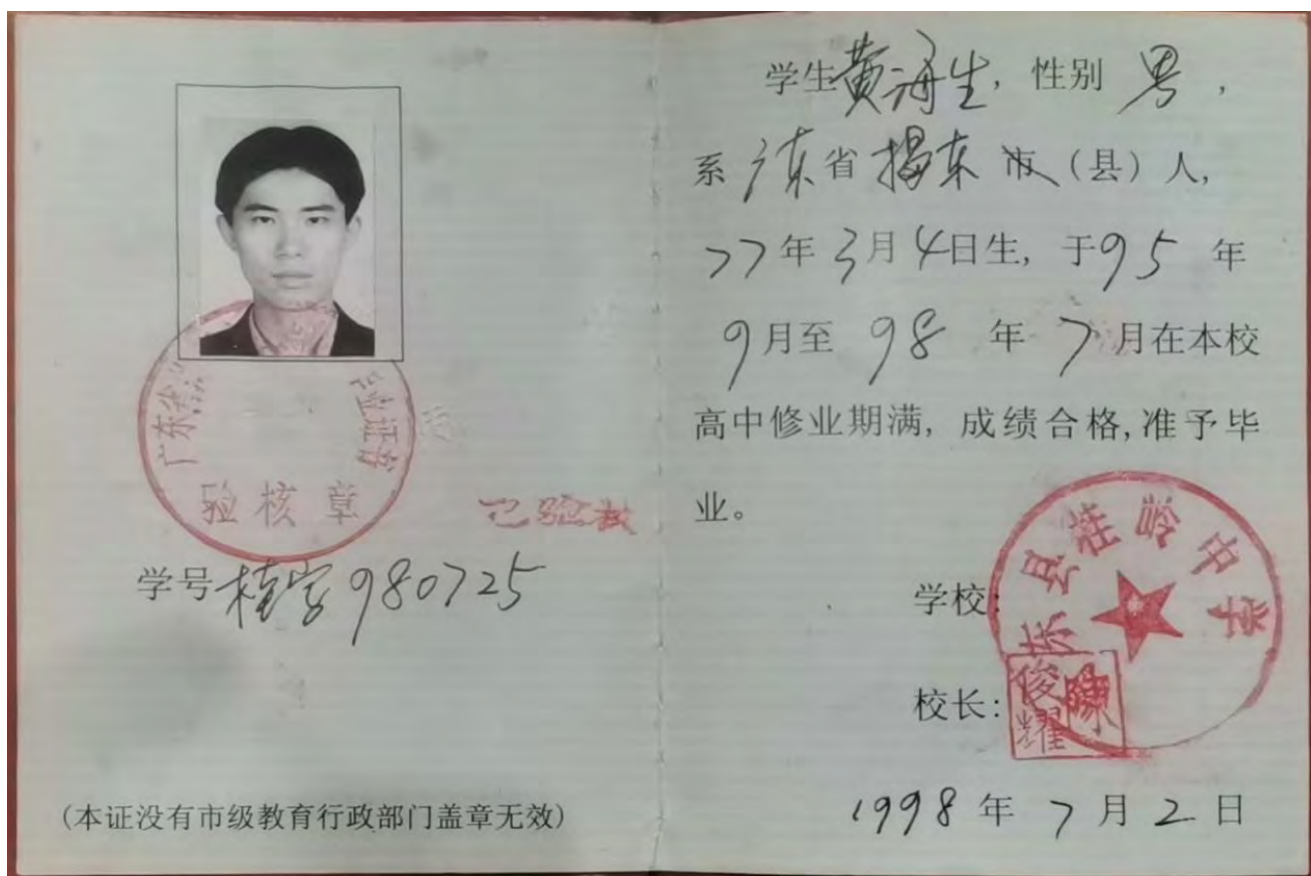 验核章
已验核
学号桂字980725
(本证没有市级教育行政部门盖章无效)
学生黄海生，性别 男，
系广东省揭东市（县）人,
77年3月4日生, 于95年
9月至98年7月在本校
高中修业期满, 成绩合格,准予毕
业。
东县桂岭中学
学校:
校长:
陈俊耀
1998年7月2日